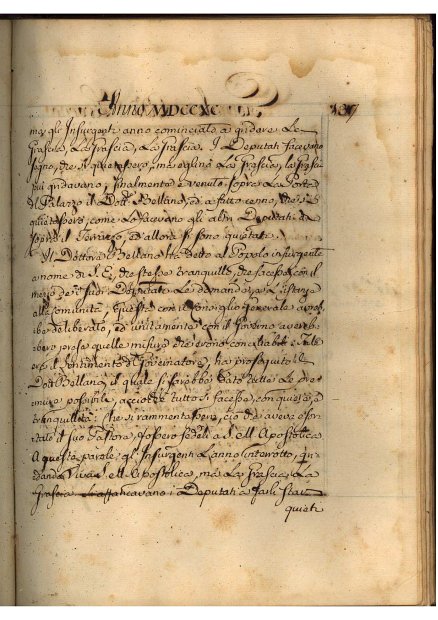 Anno MDCCXC 137
ma gli Insurgenti anno cominciato a gridare La
Grascia, La Grascia, La Grascia. I Deputati facevano
segno, che si quietassero, ma voglino La Grascia, La Grascia
più gridavano, finalmente è venuto sopra La Porta
del Palazzo il Dott. Bellano, ed a fatto cenno, che si
quietassero, come Lo facevano gli altri Deputati da
sopra il Terrazzo, ed allora si sono quietati.
Il Dottore Bellano ha detto al Popolo insurgente
a nome di S. E., che stesse tranquillo, che facesse con il
mezzo de suoi Deputati Le demande, e L'istanza
alla Comunità, Questa con il Consiglio Generale avreb-
be deliberato, ed unitamente con il Governo avereb-
bero prese quelle misure che erano
il sentimento di Governatore, ha proseguito il
Dott. Bellano, il quale si sarebbe dato tutte Le pre-
mure possibili, acciochè tutto si facesse, con quiete, e
tranquillità: che si rammentassero, ciò che aveva esor-
tato il suo Pastore, fossero fedeli a S. M. Apostolica
A queste parole gl'Insurgenti L'anno interrotto, gri-
dando Viva S. M. Apostolica, ma La Grascia, La
Grascia. Si affaticavano i Deputati a farli star
quieti